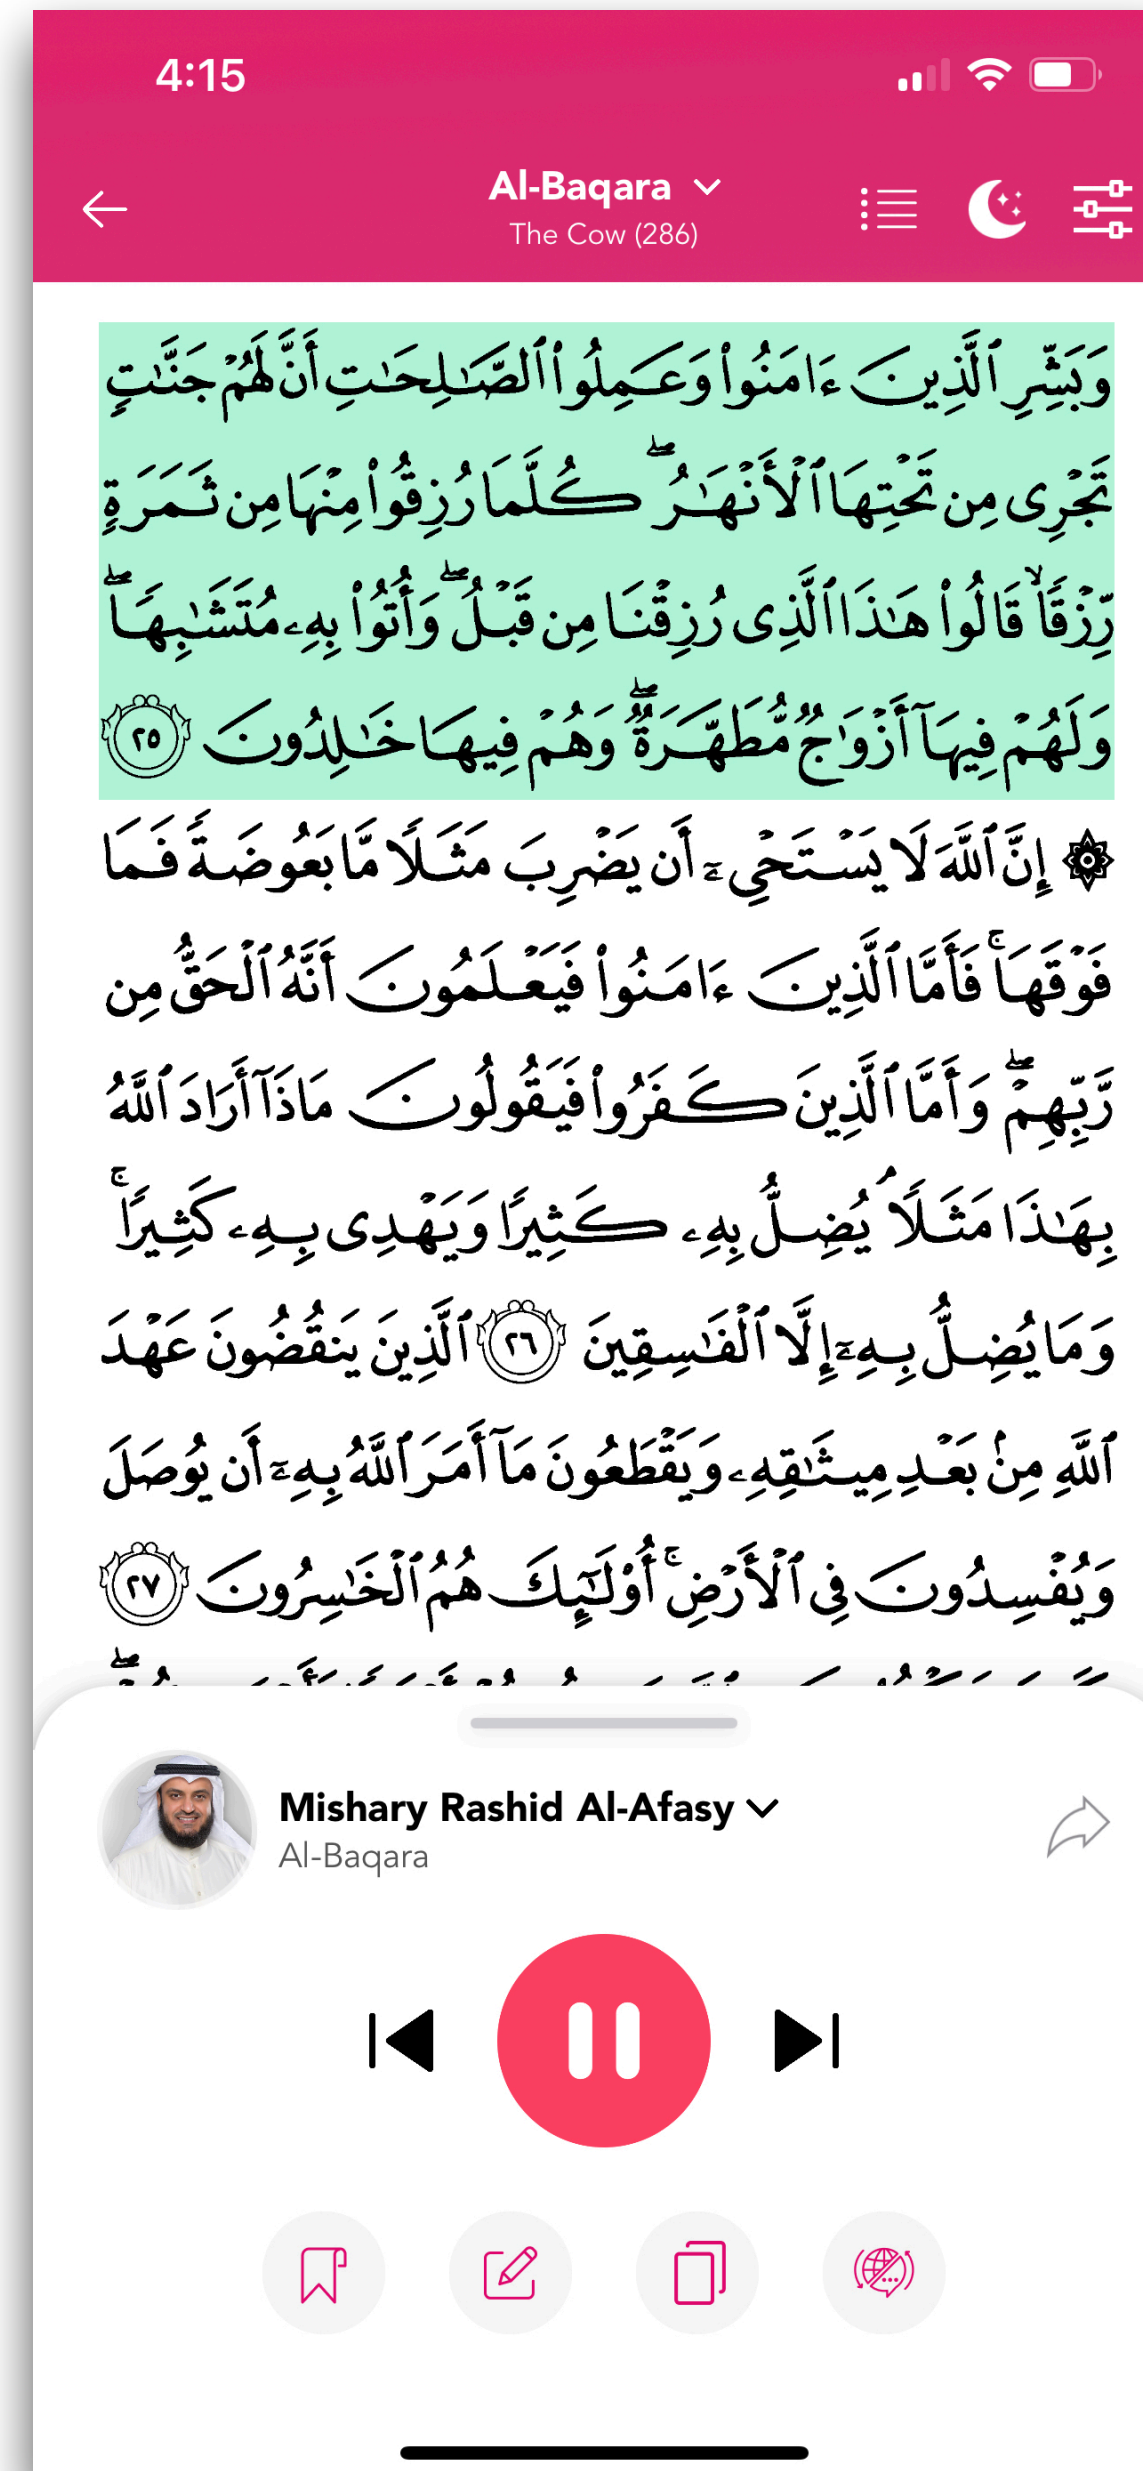 4:15
Al-Baqara
The Cow (286)
وَبَشِّرِ ٱلَّذِينَ ءَامَنُوا۟ وَعَمِلُوا۟ ٱلصَّـٰلِحَـٰتِ أَنَّ لَهُمْ جَنَّـٰتٍ
تَجْرِى مِن تَحْتِهَا ٱلْأَنْهَـٰرُ ۖ كُلَّمَا رُزِقُوا۟ مِنْهَا مِن ثَمَرَةٍ
رِّزْقًا ۙ قَالُوا۟ هَـٰذَا ٱلَّذِى رُزِقْنَا مِن قَبْلُ ۖ وَأُتُوا۟ بِهِۦ مُتَشَـٰبِهًا ۖ
وَلَهُمْ فِيهَآ أَزْوَٰجٌ مُّطَهَّرَةٌ ۖ وَهُمْ فِيهَا خَـٰلِدُونَ ٢٥
۞ إِنَّ ٱللَّهَ لَا يَسْتَحْىِۦٓ أَن يَضْرِبَ مَثَلًا مَّا بَعُوضَةً فَمَا
فَوْقَهَا ۚ فَأَمَّا ٱلَّذِينَ ءَامَنُوا۟ فَيَعْلَمُونَ أَنَّهُ ٱلْحَقُّ مِن
رَّبِّهِمْ ۖ وَأَمَّا ٱلَّذِينَ كَفَرُوا۟ فَيَقُولُونَ مَاذَآ أَرَادَ ٱللَّهُ
بِهَـٰذَا مَثَلًا ۘ يُضِلُّ بِهِۦ كَثِيرًا وَيَهْدِى بِهِۦ كَثِيرًا ۚ
وَمَا يُضِلُّ بِهِۦٓ إِلَّا ٱلْفَـٰسِقِينَ ٢٦ ٱلَّذِينَ يَنقُضُونَ عَهْدَ
ٱللَّهِ مِنۢ بَعْدِ مِيثَـٰقِهِۦ وَيَقْطَعُونَ مَآ أَمَرَ ٱللَّهُ بِهِۦٓ أَن يُوصَلَ
وَيُفْسِدُونَ فِى ٱلْأَرْضِ ۚ أُو۟لَـٰٓئِكَ هُمُ ٱلْخَـٰسِرُونَ ٢٧
Mishary Rashid Al-Afasy
Al-Baqara